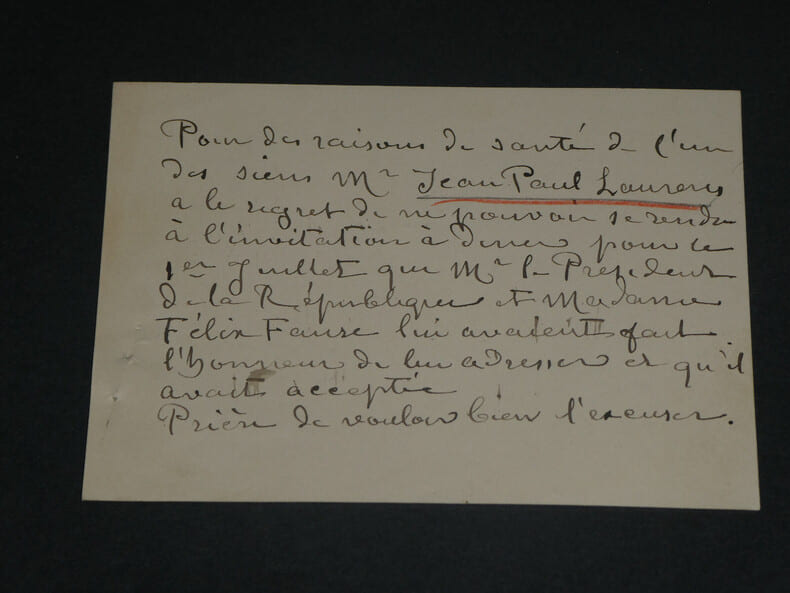 Pour des raisons de santé de l'un
des siens Mr Jean Paul Laurens
a le regret de ne pouvoir se rendre
à l'invitation à diner pour le
1er Juillet que Mr le Président
de la République et Madame
Félix Faure lui avaient fait
l'honneur de lui adresser et qu'il
avait acceptée
Prière de vouloir bien l'excuser.